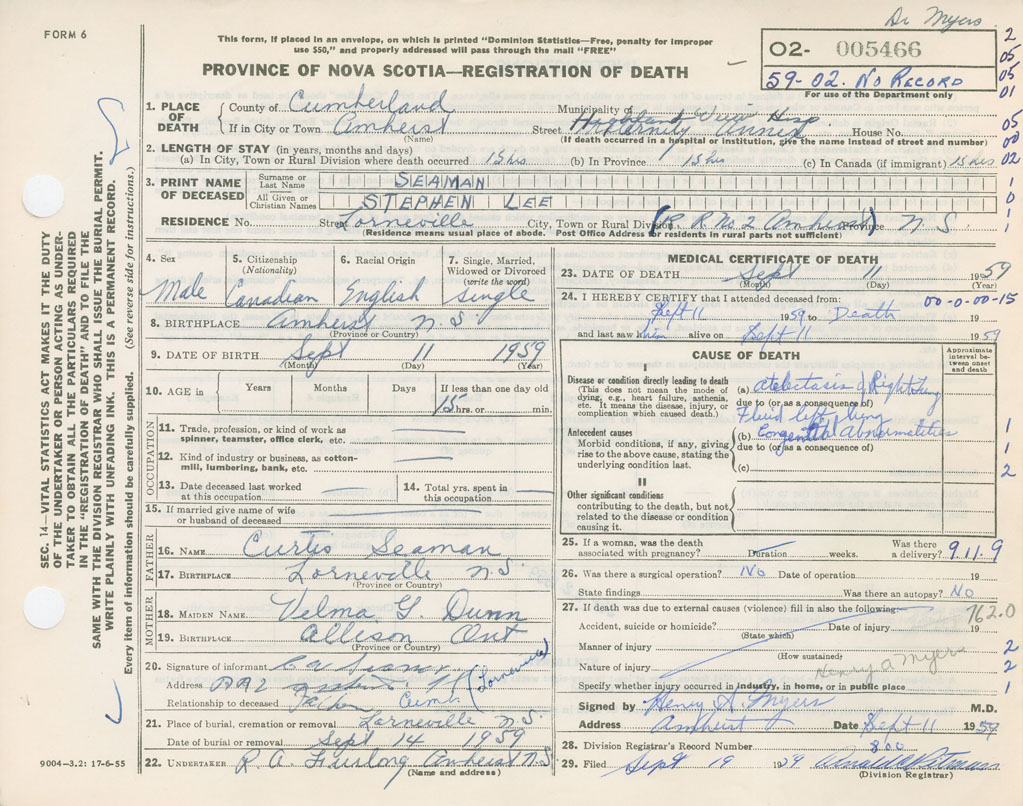 Dr Myers
FORM 6
This form, if placed in an envelope, on which is printed "Dominion Statistics—Free, penalty for improper
use $50," and properly addressed will pass through the mail "FREE"
O2- 005466
59-02. No Record
For use of the Department only
PROVINCE OF NOVA SCOTIA—REGISTRATION OF DEATH
2
05
05
01
05
00
02
1
0
1
1
SEC. 14—VITAL STATISTICS ACT MAKES IT THE DUTY
OF THE UNDERTAKER OR PERSON ACTING AS UNDER-
TAKER TO OBTAIN ALL THE PARTICULARS REQUIRED
IN THE "REGISTRATION OF DEATH" AND TO FILE THE
SAME WITH THE DIVISION REGISTRAR WHO SHALL ISSUE THE BURIAL PERMIT.
WRITE PLAINLY WITH UNFADING INK. THIS IS A PERMANENT RECORD.
Every item of information should be carefully supplied. (See reverse side for instructions.)
1. PLACE OF DEATH
County of Cumberland
Municipality of
If in City or Town Amherst
(Name)
Street Highland View Hosp. Maternity Annex House No.
(If death occurred in a hospital or institution, give the name instead of street and number)
2. LENGTH OF STAY (in years, months and days)
(a) In City, Town or Rural Division where death occurred 15 hrs (b) In Province 15 hrs (c) In Canada (if immigrant) 15 hrs
3. PRINT NAME OF DECEASED
Surname or Last Name SEAMAN
All Given or Christian Names STEPHEN LEE
RESIDENCE No. Street Lorneville City, Town or Rural Division (R R No 2 Amherst) Province N S
(Residence means usual place of abode. Post Office Address for residents in rural parts not sufficient)
4. Sex
Male
5. Citizenship
(Nationality)
Canadian
6. Racial Origin
English
7. Single, Married,
Widowed or Divorced
(write the word)
single
8. BIRTHPLACE Amherst N S
(Province or Country)
9. DATE OF BIRTH Sept 11 1959
(Month) (Day) (Year)
10. AGE in
Years Months Days If less than one day old
15 hrs. or min.
OCCUPATION
11. Trade, profession, or kind of work as
spinner, teamster, office clerk, etc.
12. Kind of industry or business, as cotton-
mill, lumbering, bank, etc.
13. Date deceased last worked
at this occupation
14. Total yrs. spent in
this occupation
15. If married give name of wife
or husband of deceased
FATHER
16. NAME Curtis Seaman
17. BIRTHPLACE Lorneville N.S.
(Province or Country)
MOTHER
18. MAIDEN NAME Velma G. Dunn
19. BIRTHPLACE Allison Ont
(Province or Country)
20. Signature of informant C W Seaman
Address RR2 Amherst N S (Lorneville)
Relationship to deceased Father Cumb.
21. Place of burial, cremation or removal Lorneville N.S.
Date of burial or removal Sept 14 1959
22. UNDERTAKER R. A. Furlong Amherst N S
(Name and address)
9004-3.2: 17-6-55
MEDICAL CERTIFICATE OF DEATH
23. DATE OF DEATH Sept 11 1959
(Month) (Day) (Year)
24. I HEREBY CERTIFY that I attended deceased from: 00-0-00-15
Sept 11 1959 to Death 19
and last saw him alive on Sept 11 1959
CAUSE OF DEATH
Approximate
interval be-
tween onset
and death
I
Disease or condition directly leading to death
(This does not mean the mode of
dying, e.g., heart failure, asthenia,
etc. It means the disease, injury, or
complication which caused death.)
(a) atelectasis of Right lung
due to (or as a consequence of)
Fluid left lung
Antecedent causes
Morbid conditions, if any, giving
rise to the above cause, stating the
underlying condition last.
(b) Congenital Abnormalities
due to (or as a consequence of)
(c)
1
1
2
II
Other significant conditions
contributing to the death, but not
related to the disease or condition
causing it.
25. If a woman, was the death
associated with pregnancy? Duration weeks. Was there
a delivery? 9.11.9
26. Was there a surgical operation? No Date of operation 19
State findings Was there an autopsy? No
27. If death was due to external causes (violence) fill in also the following: 762.0
Accident, suicide or homicide? Date of injury 19
(State which)
Manner of injury 2
(How sustained)
Henry A Myers
Nature of injury 2
Specify whether injury occurred in industry, in home, or in public place 1
Signed by Henry A. Myers M.D.
Address Amherst Date Sept 11 1959
28. Division Registrar's Record Number 800
29. Filed Sept 19 1959
(Division Registrar)